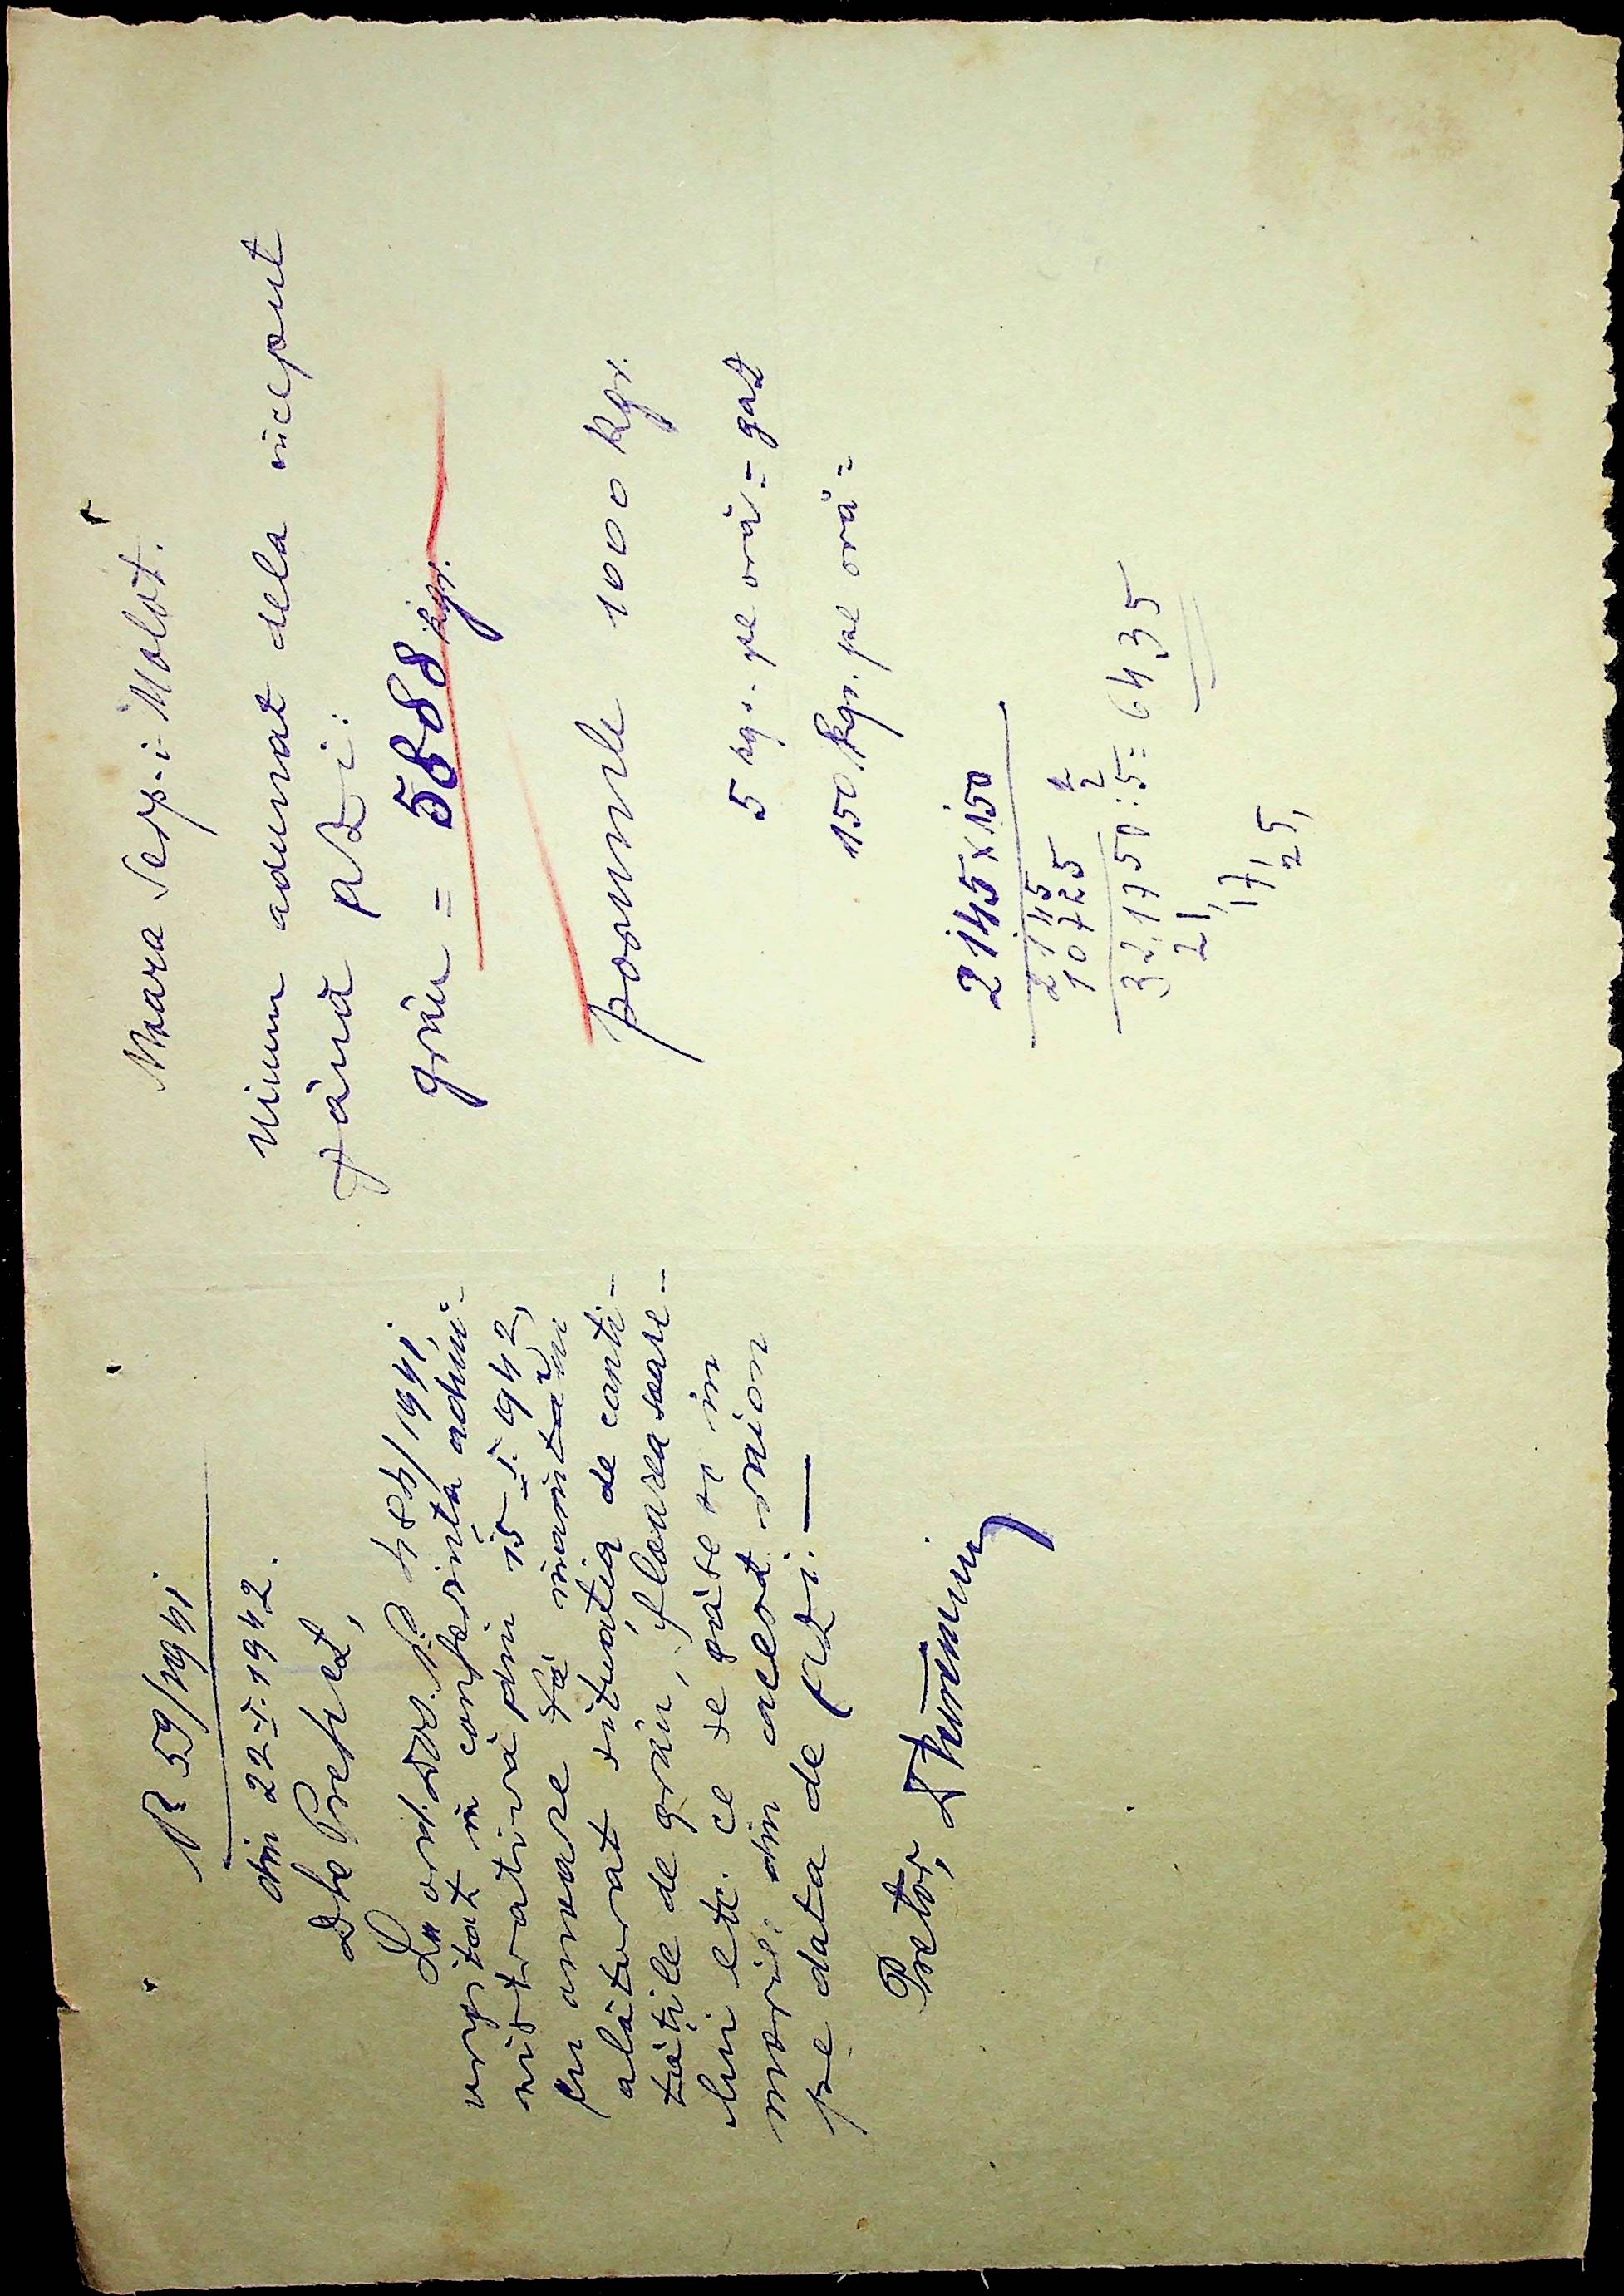 No 59/1941
din 22-I-1942.
Dle Prefect,
La ord. Dvs. No 484/1941,
urgitat în conferința admi-
nistrativă din 15-I-1942,
cu onoare Vă înaintăm
alăturat situația de canti-
tățile de grâu, floarea soare-
lui etc. ce se găsesc în
morile din acest raion
pe data de azi.—
Pretor,
Moara Serp-i-Molot.
Uium adunat dela început
până azi:
grâu = 5588 kgr.
porumb 1000 kgr.
5 kgr. pe oră = gaz
150 kgr. pe oră =
2145 x 150
2145
10725
321750:5 = 6435
21
17
25